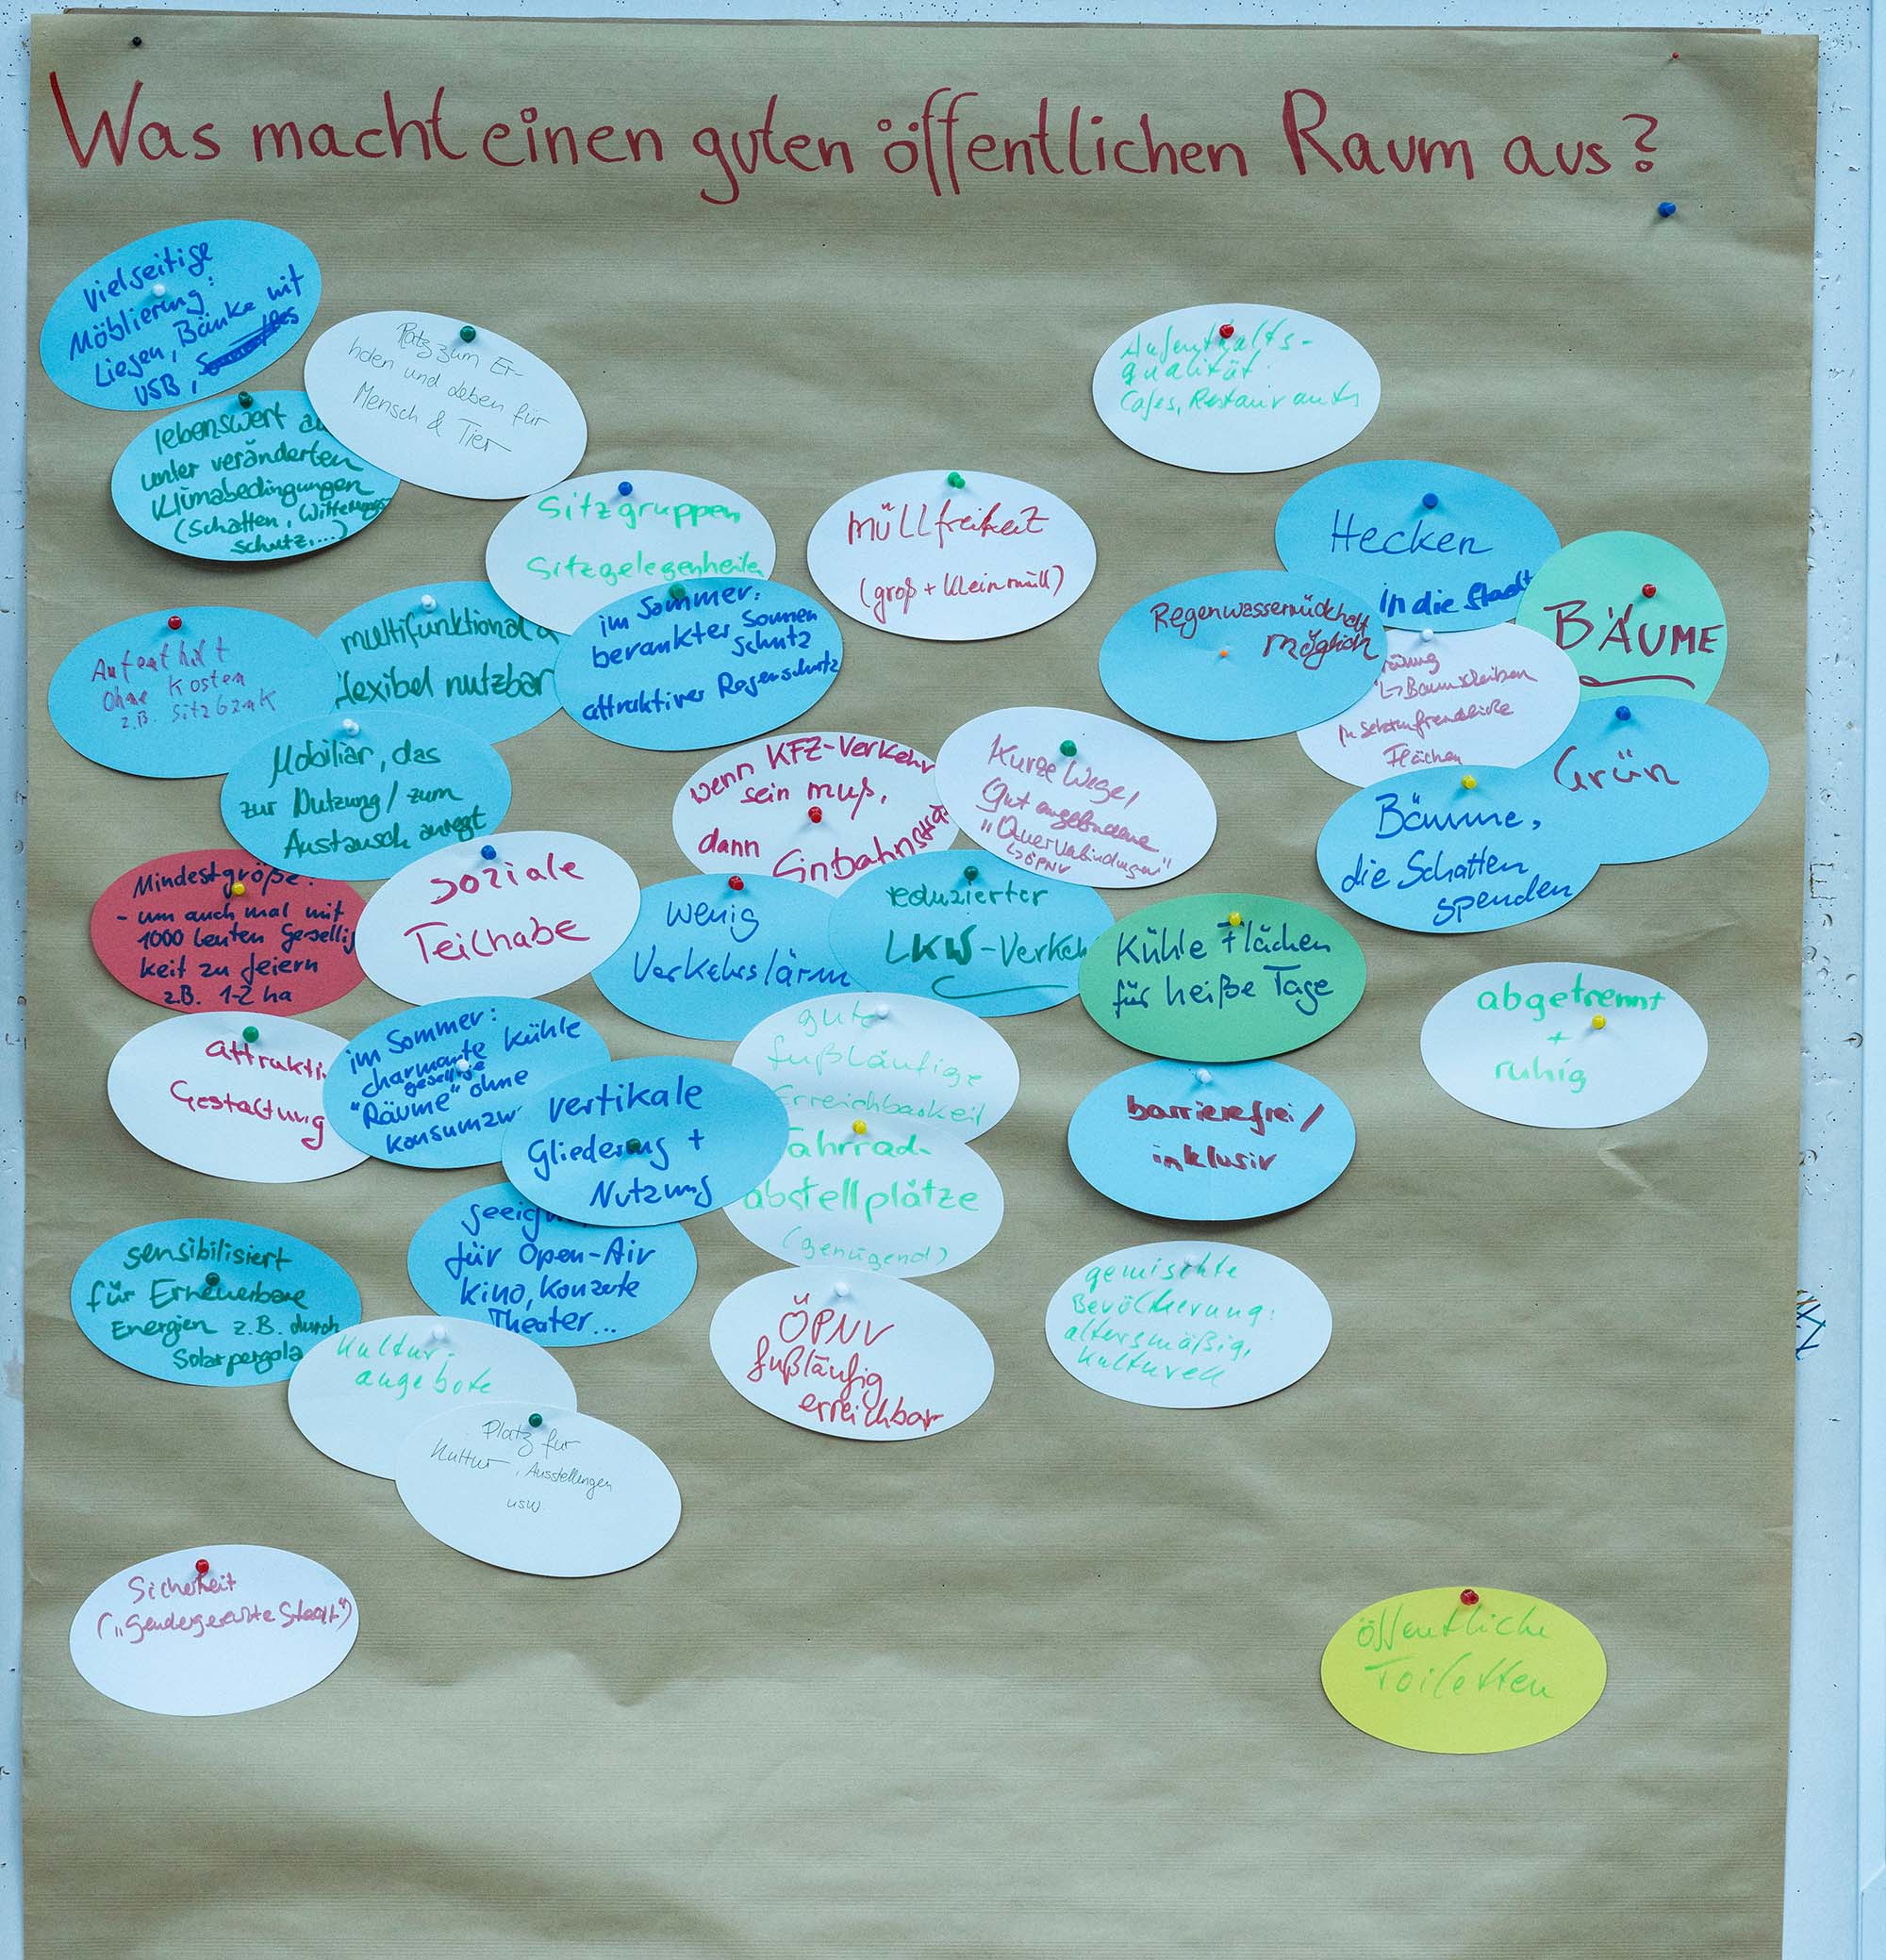 Was macht einen guten öffentlichen Raum aus?
Vielseitige
Möblierung:
Liegen, Bänke mit
USB,
Platz zum Er-
holen und
Mensch & Tier
lebenswert
unter veränderten
Klimabedingungen
(Schatten, Witterungs
schutz,...)
Aufenthalts-
qualität
Cafes, Restaurants
Sitzgruppen
Sitzgelegenheiten
MÜLLfreiheit
(groß + Kleinmüll)
Hecken
in die Stadt
BÄUME
Regenwasserrückhalt
möglich
Baumscheiben
Flächen
Grün
Bäume,
die Schatten
spenden
Aufenthalt
Ohne Kosten
z.B. Sitzbank
multifunktional
flexibel nutzbar
im Sommer:
berankter Sonnen
Schutz
attraktiver Regenschutz
Mobiliar, das
zur Nutzung / zum
Austausch anregt
wenn KFZ-Verkehr
sein muß,
dann
Kurze Wege,
Gut angebundene
"Querverbindungen"
↳ ÖPNV
Mindestgröße:
- um auch mal mit
1000 Leuten Gesellig
keit zu feiern
z.B. 1-2 ha
soziale
Teilhabe
wenig
Verkehrslärm
reduzierter
LKW-Verkeh
Kühle Flächen
für heiße Tage
abgetrennt
+
ruhig
attrakti
Gestaltung
im Sommer:
charmante kühle
gesellige
"Räume" ohne
Konsumzw
vertikale
Gliederung +
Nutzung
gute
fußläufige
Erreichbarkeit
Fahrrad-
abstellplätze
(genügend)
barrierefrei /
inklusiv
sensibilisiert
für Erneuerbare
Energien z.B. durch
Solarpergola
geeig
für Open-Air
Kino, Konzerte
Theater...
ÖPNV
fußläufig
erreichbar
gemischte
Bevölkerung:
altersmäßig,
kulturell
Kultur-
angebote
Platz für
Kultur, Ausstellungen
usw.
Sicherheit
("Gendergerechte Stadt")
öffentliche
Toiletten